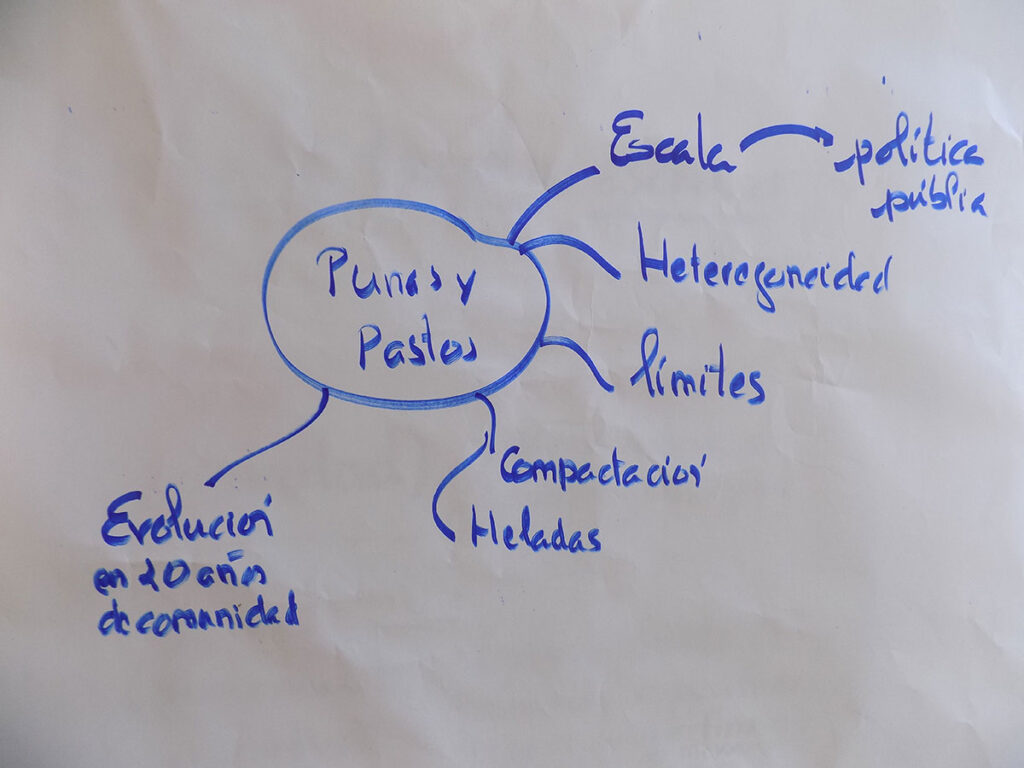 Punas y
Pastos
Escala
política
públia
Heterogeneidad
límites
Compactación
Heladas
Evolución
en 20 años
de comunidad